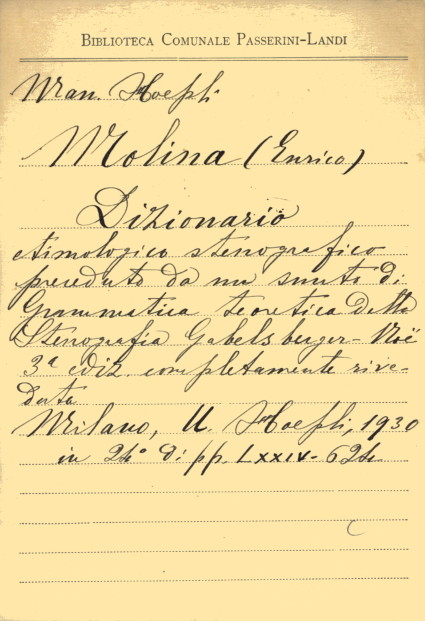 BIBLIOTECA COMUNALE PASSERINI-LANDI
Man. Hoepli
Molina (Enrico)
Dizionario
etimologico stenografico
preceduto da un sunto di
Grammatica teoretica della
Stenografia Gabelsberger-Noë
3ª ediz. completamente rive-
duta
Milano, U. Hoepli, 1930
in 24° di pp. LXXIV-624